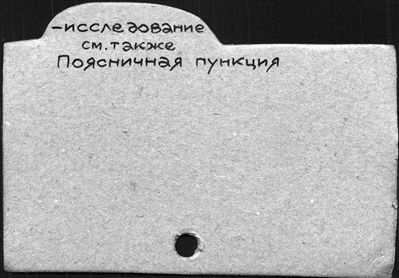 -исследование
см. также
Поясничная пункция